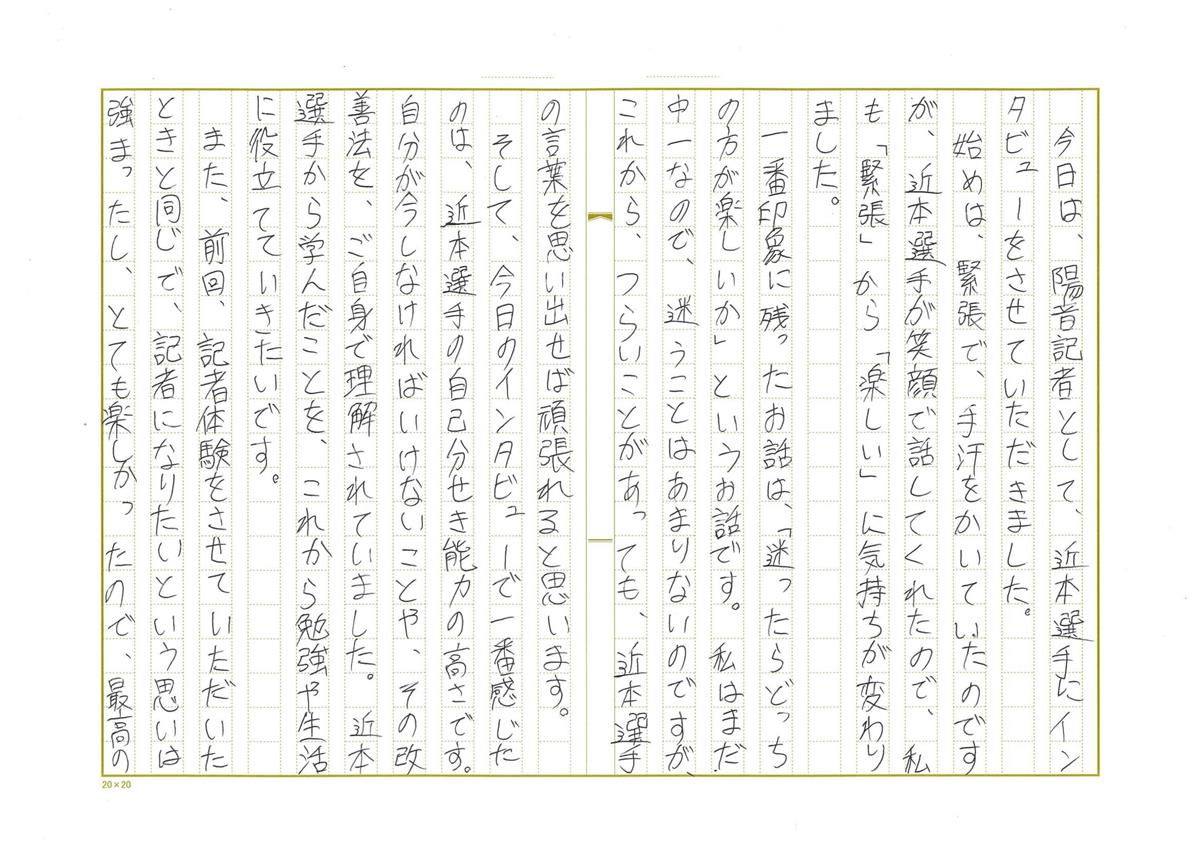 今日は、陽音記者として、近本選手にイン
タビューをさせていただきました。
　始めは、緊張で、手汗をかいていたのです
が、近本選手が笑顔で話してくれたので、私
も「緊張」から「楽しい」に気持ちが変わり
ました。
　一番印象に残ったお話は、「迷ったらどっち
の方が楽しいか」というお話です。私はまだ
中一なので、迷うことはあまりないのですが、
これから、つらいことがあっても、近本選手
の言葉を思い出せば頑張れると思います。
　そして、今日のインタビューで一番感じた
のは、近本選手の自己分せき能力の高さです。
自分が今しなければいけないことや、その改
善法を、ご自身で理解されていました。近本
選手から学んだことを、これから勉強や生活
に役立てていきたいです。
　また、前回、記者体験をさせていただいた
ときと同じで、記者になりたいという思いは
強まったし、とても楽しかったので、最高の
20×20